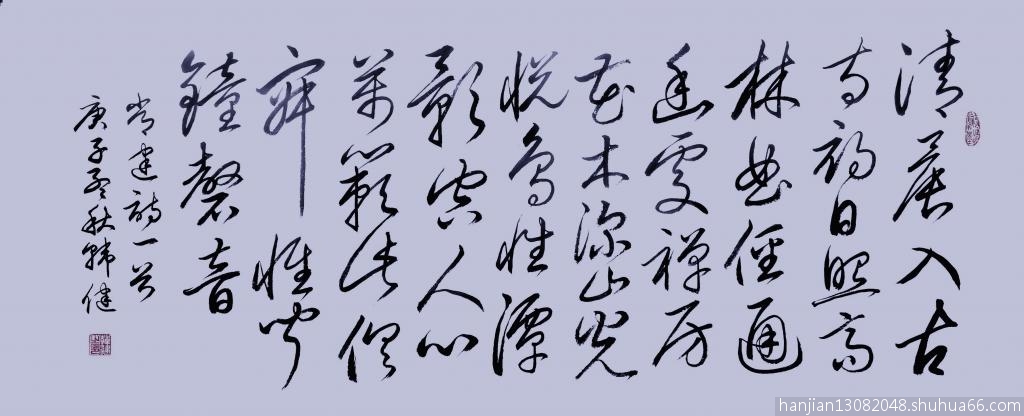 清晨入古
寺初日照高
林曲徑通
幽處禪房
花木深山光
悅鳥性潭
影空人心
萬籟此俱
寂惟聞
鐘磬音
常建詩一首
庚子孟秋韓健
hanjian13082048.shuhua66.com